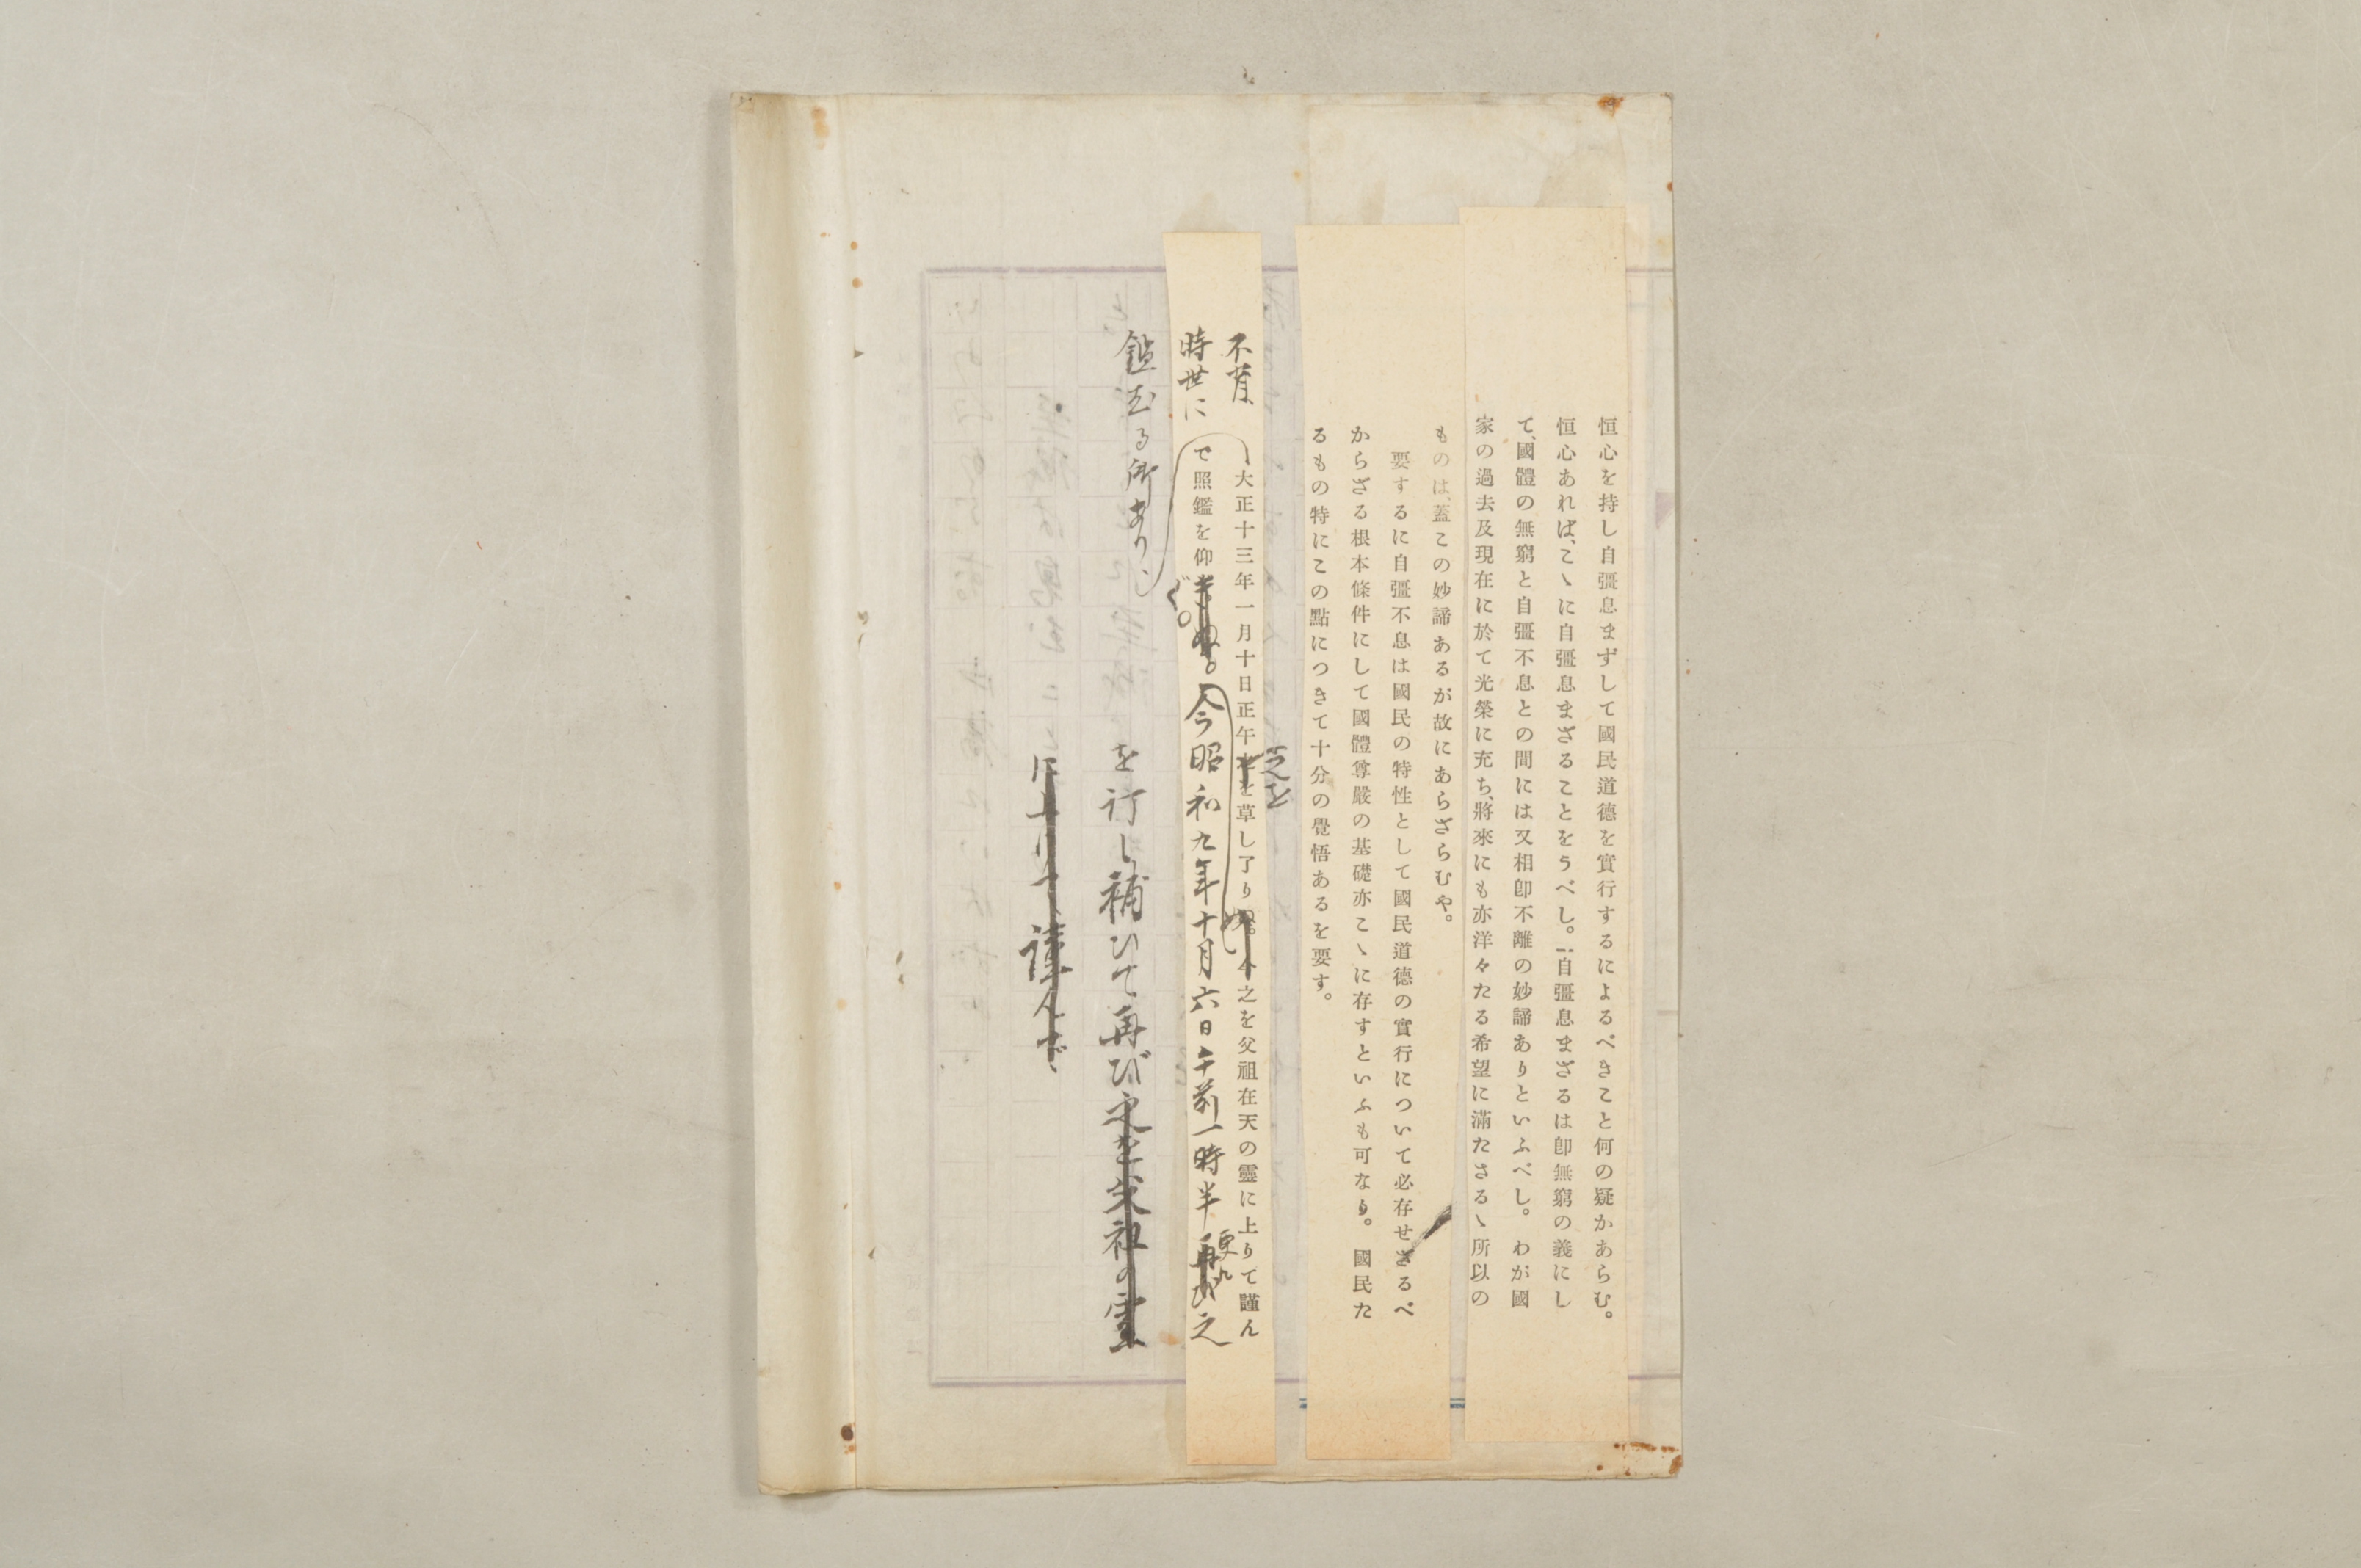 恒心を持し自彊息まずして國民道德を實行するによるべきこと何の疑かあらむ。
恒心あれば、こゝに自彊息まざることをうべし。自彊息まざるは卽無窮の義にし
て、國體の無窮と自彊不息との間には又相卽不離の妙諦ありといふべし。わが國
家の過去及現在に於て光榮に充ち、將來にも亦洋々たる希望に滿たさるゝ所以の
ものは、蓋この妙諦あるが故にあらざらむや。
要するに自彊不息は國民の特性として國民道德の實行について必存せざるべ
からざる根本條件にして國體尊嚴の基礎亦こゝに存すといふも可なり。國民た
るもの特にこの點につきて十分の覺悟あるを要す。
之を
不肖
大正十三年一月十日正午を草し了りぬ。今之を父祖在天の靈に上りて謹ん
時世に
で照鑑を仰ぐ。今昭和九年十月六日午前一時半再び之
更に
鑑る所あり
を訂し補ひて再び之を父祖の靈
に上りて謹んで